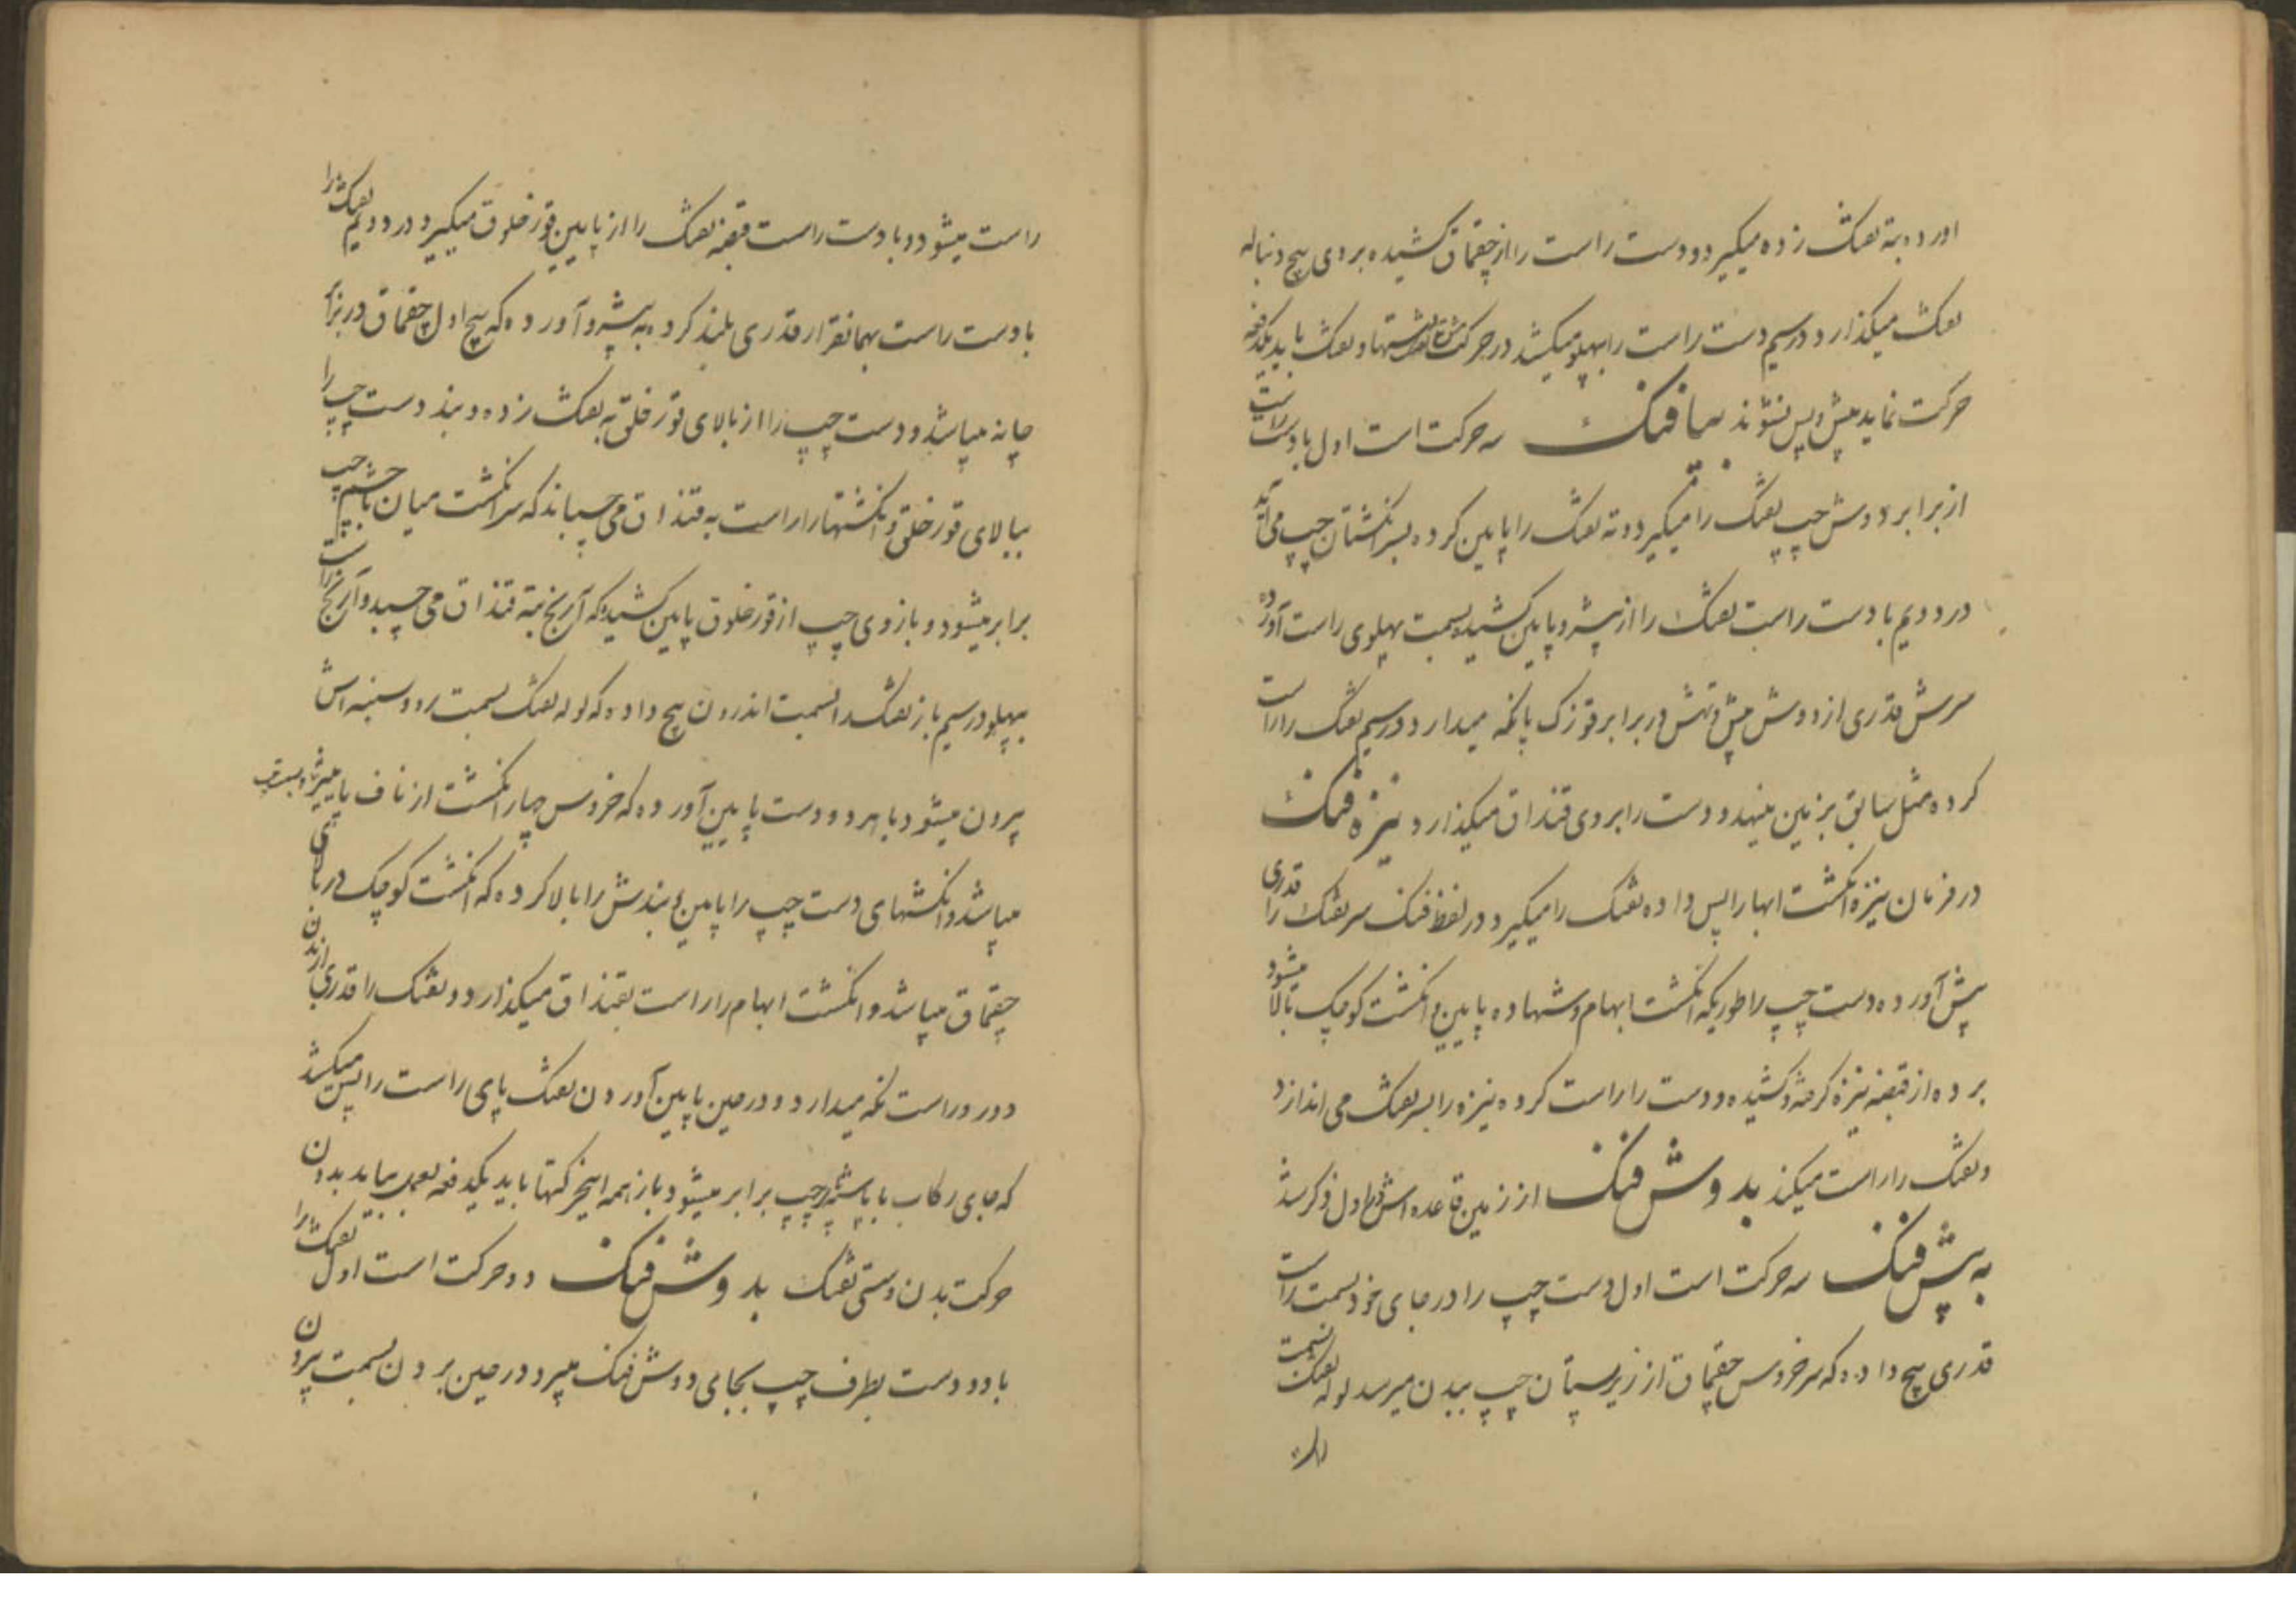 آورده به ته تفنک زده میکیرد و دست راست را از چقماق کشیده بروی پیچ دنباله
تفنک میکذارد درسیم دست راست را بپهلو میکشد در حرکت مشق تفنک دستها و تفنک باید یکدفعه
حرکت نماید پیش و پس نشوند بپا فنک سه حرکت است اول با دست راست
از برابر دوش چپ تفنک را میکیرد و ته تفنک را پایین کرده بسر انکشتان چپ می آید
در دویم با دست راست تفنک را از پیشرو پایین کشیده بسمت پهلوی راست آورده
سرش قدری از دوش پیش و تهش در برابر قوزک پا نکه میدارد درسیم تفنک را راست
کرده مثل سابق بزمین مینهد و دست را بروی قنداق میکذارد نیزه فنک
در فرمان نیزه انکشت ابهام را پس داده تفنک را میکیرد در لفظ فنک سر تفنک را قدری
پیش آورده دست چپ را طوریکه انکشت ابهام و شهاده پایین و انکشت کوچک بالا میشود
برده از قبضه نیزه کرفته و کشیده و دست را راست کرده نیزه را بسر تفنک می اندازد
و تفنک را راست میکند بدوش فنک از زمین قاعده اش در اول ذکر شد
به پیش فنک سه حرکت است اول دست چپ را در جای خود بسمت راست
قدری پیچ داده که سر خروس چقماق از زیر پستان چپ ببدن میرسد لوله تفنک بسمت
راست میشود و با دست راست قبضه تفنک را از پایین قورخلوق میکیرد در دویم تفنک را
با دست راست بهمانقرار قدری بلند کرده به پیشرو آورده که پیچ اول چقماق در برابر
چانه میباشد و دست چپ را از بالای قورخلق به تفنک زده و بند دست چپ را
ببالای قورخلق و انکشتها را راست به قنداق می چسباند که سر انکشت میان با چشم چپ
برابر میشود و بازوی چپ از قورخلوق پایین کشیده که آرنج به ته قنداق می چسبد و آرنج راست را
بپهلو درسیم باز تفنک را بسمت اندرون پیچ داده که لوله تفنک بسمت رو و سنبه اش
بیرون میشود با هر دو دست پایین آورده که خروس چهار انکشت از ناف پایین تر
میباشد و انکشتهای دست چپ را پایین و بندش را بالا کرده که انکشت کوچک در بالای
چقماق میباشد و انکشت ابهام را راست بقنداق میکذارد و تفنک را قدری از بدن
دور و راست نکه میدارد و در حین پایین آوردن تفنک پای راست را پس میکشد
که جای رکاب با پاشنه چپ برابر میشود باز همه اینحرکتها باید یکدفعه بعمل بیاید بدون
حرکت بدن و سستی تفنک بدوش فنک دو حرکت است اول تفنک را
با دو دست بطرف چپ بجای دوش فنک میبرد در حین بردن بسمت بیرون